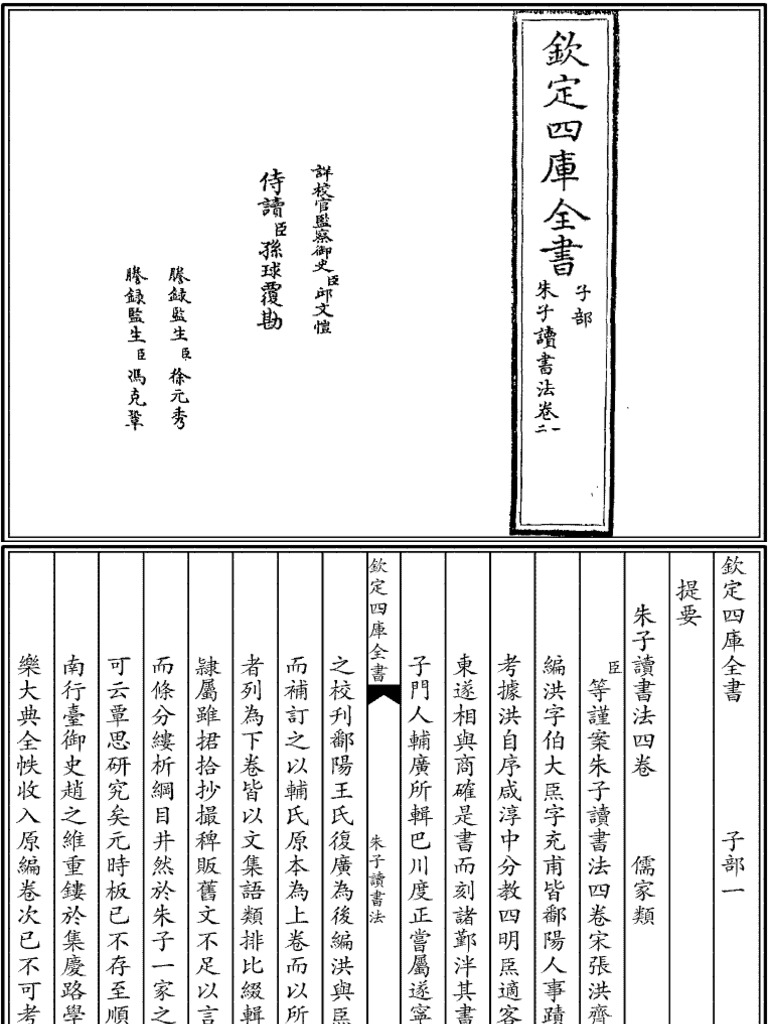 欽定四庫全書
子部
朱子讀書法卷一二
詳校官監察御史臣邱文愷
侍讀臣孫球覆勘
謄錄監生臣徐元秀
謄錄監生臣馮克鞏
欽定四庫全書 子部一
提要
朱子讀書法四卷 儒家類
臣等謹案朱子讀書法四卷宋張洪齊
編洪字伯大𤋮字充甫皆鄱陽人事蹟
考據洪自序咸淳中分教四明𤋮適客
東遂相與商確是書而刻諸鄞泮其書
子門人輔廣所輯巴川度正嘗屬遂寧
欽定四庫全書 朱子讀書法
之校刊鄱陽王氏復廣為後編洪與𤋮
而補訂之以輔氏原本為上卷而以所
者列為下卷皆以文集語類排比綴輯
隸屬雖捃拾抄撮稗販舊文不足以言
而條分縷析綱目井然於朱子一家之
可云覃思研究矣元時板已不存至順
南行臺御史趙之維重鏤於集慶路學
樂大典全帙收入原編卷次已不可考